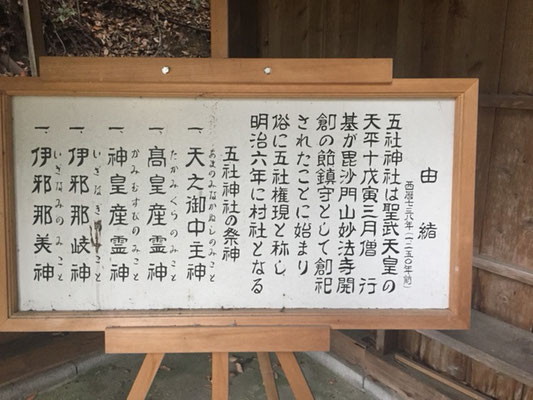 由緒
五社神社は聖武天皇の
西暦七三八年(一二五〇年前)
天平十戊寅三月僧 行
基が毘沙門山妙法寺開
創の節鎮守として創祀
されたことに始まり
俗に五社権現と称し
明治六年に村社となる
五社神社の祭神
あまのみなかぬしのみこと
一、天之御中主神
たかみくらのみこと
一、高皇産霊神
かみむすびのみこと
一、神皇産霊神
いざなぎのみこと
一、伊邪那岐神
いざなみのみこと
一、伊邪那美神